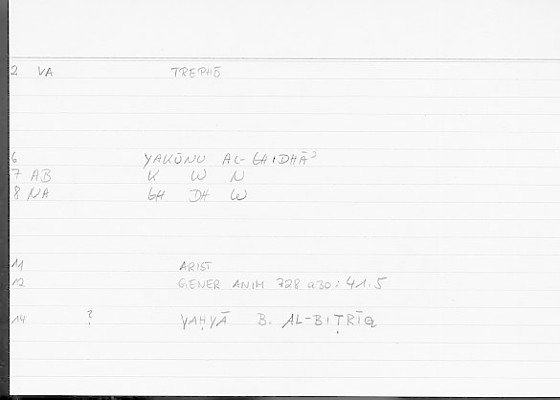 2 VA TREPHŌ
6 YAKŪNU AL-GHIDHĀʾ
7 AB K W N
8 NA GH DH W
11 ARIST
12 GENER ANIM 728 a30 : 41.5
14 ? YAḤYĀ B. AL-BIṬRĪQ